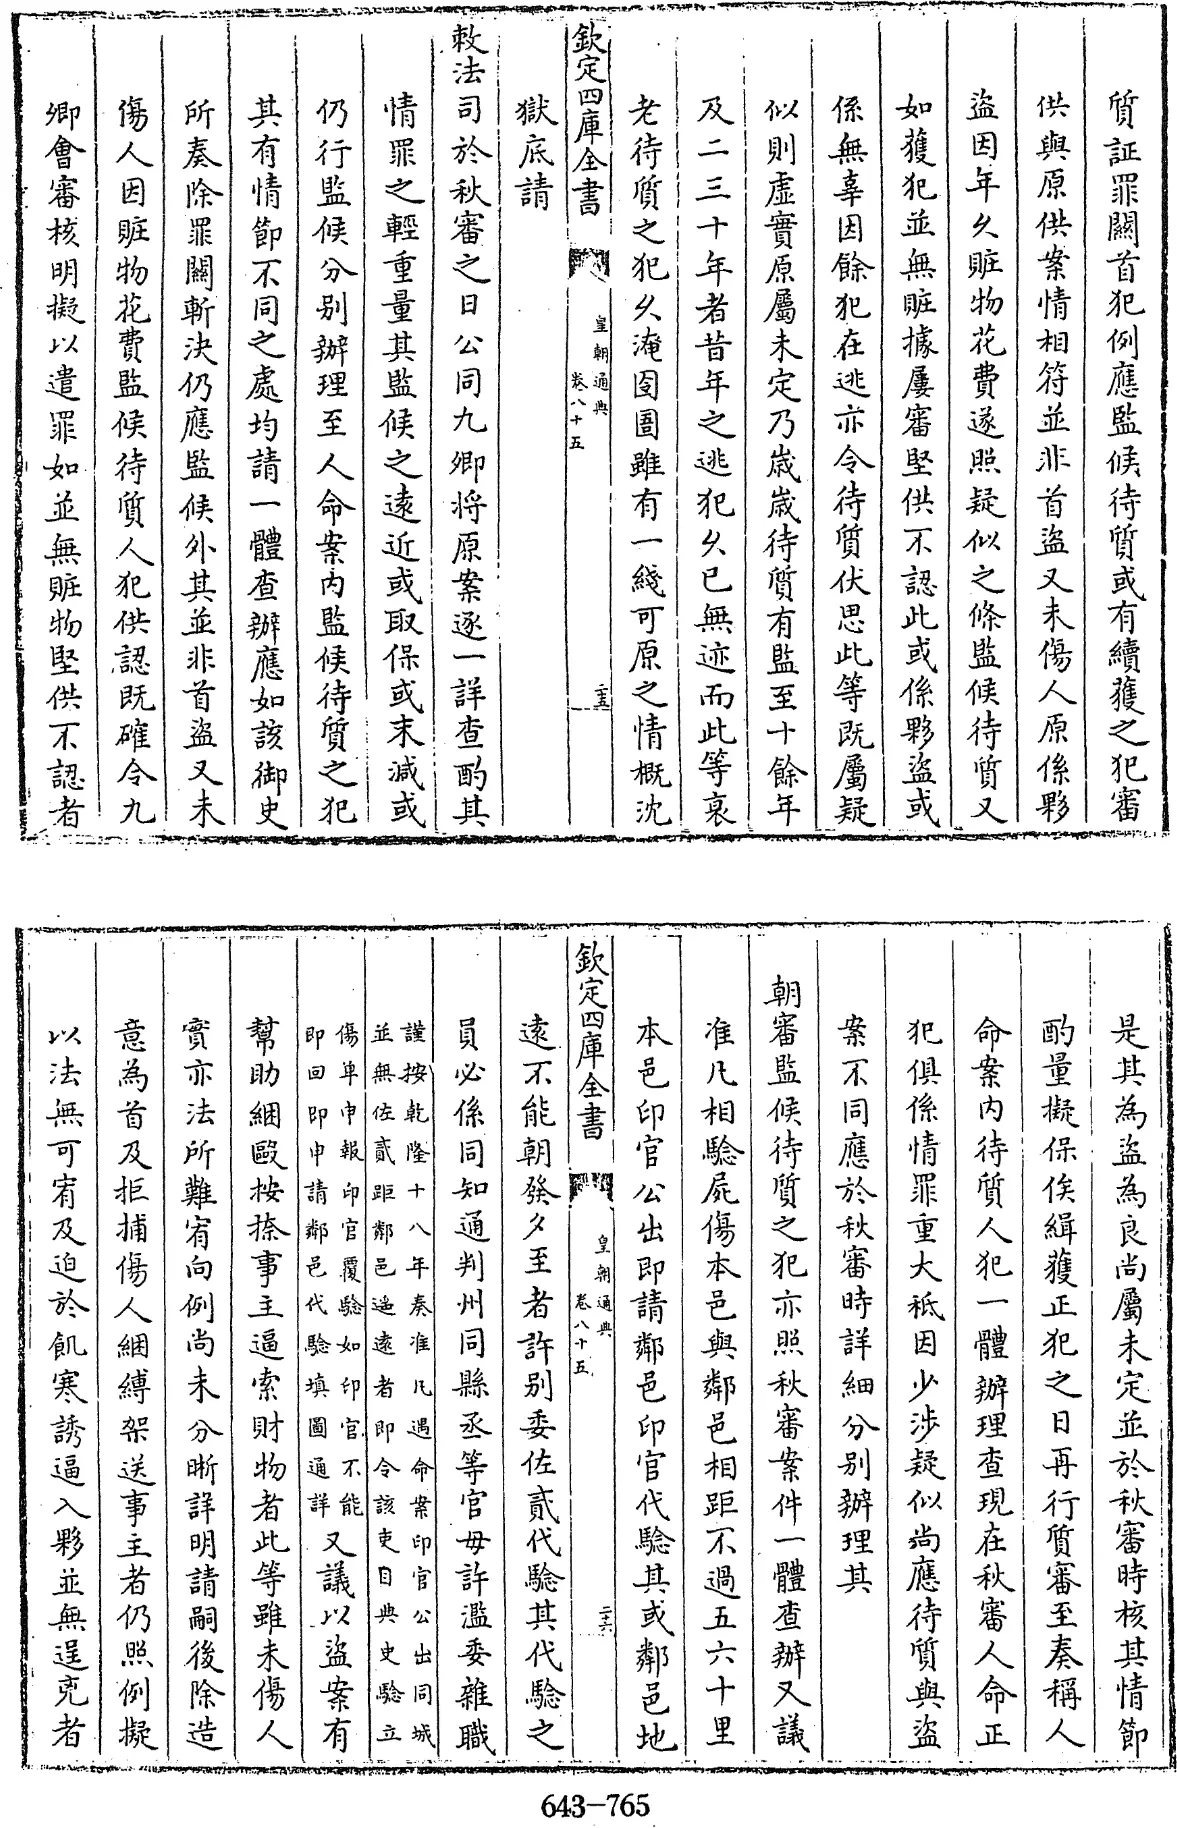 質証罪關首犯例應監候待質或有續獲之犯審
供與原供案情相符並非首盜又未傷人原係夥
盜因年久賍物花費遂照疑似之條監候待質又
如獲犯並無賍據屢審堅供不認此或係夥盜或
係無辜因餘犯在逃亦令待質伏思此等既屬疑
似則虛實原屬未定乃歲歲待質有監至十餘年
及二三十年者昔年之逃犯久已無迹而此等衰
老待質之犯久淹囹圄雖有一綫可原之情概沈
欽定四庫全書
皇朝通典
卷八十五
二十五
獄底請
敕法司於秋審之日公同九卿將原案逐一詳查酌其
情罪之輕重量其監候之遠近或取保或末減或
仍行監候分別辦理至人命案内監候待質之犯
其有情節不同之處均請一體查辦應如該御史
所奏除罪關斬決仍應監候外其並非首盜又未
傷人因賍物花費監候待質人犯供認既確令九
卿會審核明擬以遣罪如並無賍物堅供不認者
是其為盜為良尚屬未定並於秋審時核其情節
酌量擬保俟緝獲正犯之日再行質審至奏稱人
命案内待質人犯一體辦理查現在秋審人命正
犯俱係情罪重大秪因少涉疑似尚應待質與盜
案不同應於秋審時詳細分別辦理其
朝審監候待質之犯亦照秋審案件一體查辦又議
准凡相驗屍傷本邑與鄰邑相距不過五六十里
本邑印官公出即請鄰邑印官代驗其或鄰邑地
欽定四庫全書
皇朝通典
卷八十五
二十六
遠不能朝發夕至者許別委佐貳代驗其代驗之
員必係同知通判州同縣丞等官毋許濫委雜職
謹按乾隆十八年奏准凡遇命案印官公出同城
並無佐貳距鄰邑遥遠者即令該吏目典史驗立
傷單申報印官覆驗如印官不能
即回即申請鄰邑代驗填圖通詳
又議以盜案有
幫助綑毆按捺事主逼索財物者此等雖未傷人
實亦法所難宥向例尚未分晰詳明請嗣後除造
意為首及拒捕傷人綑縛架送事主者仍照例擬
以法無可宥及迫於飢寒誘逼入夥並無逞兇者
643-765